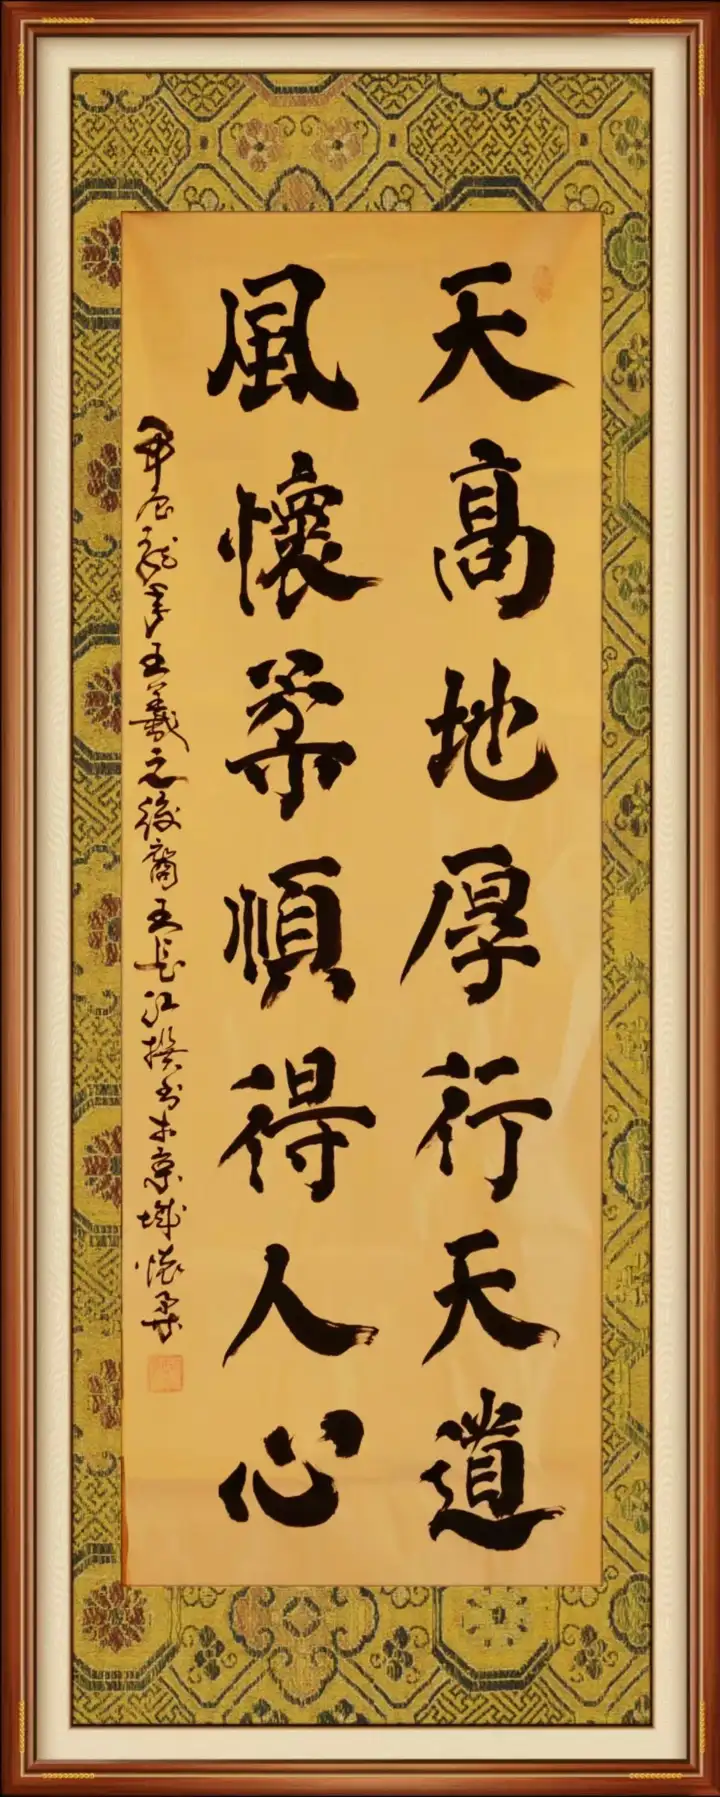 天高地厚行天道
風懷柔順得人心
甲辰龍年王羲之後裔王長江撰書於京城懷柔